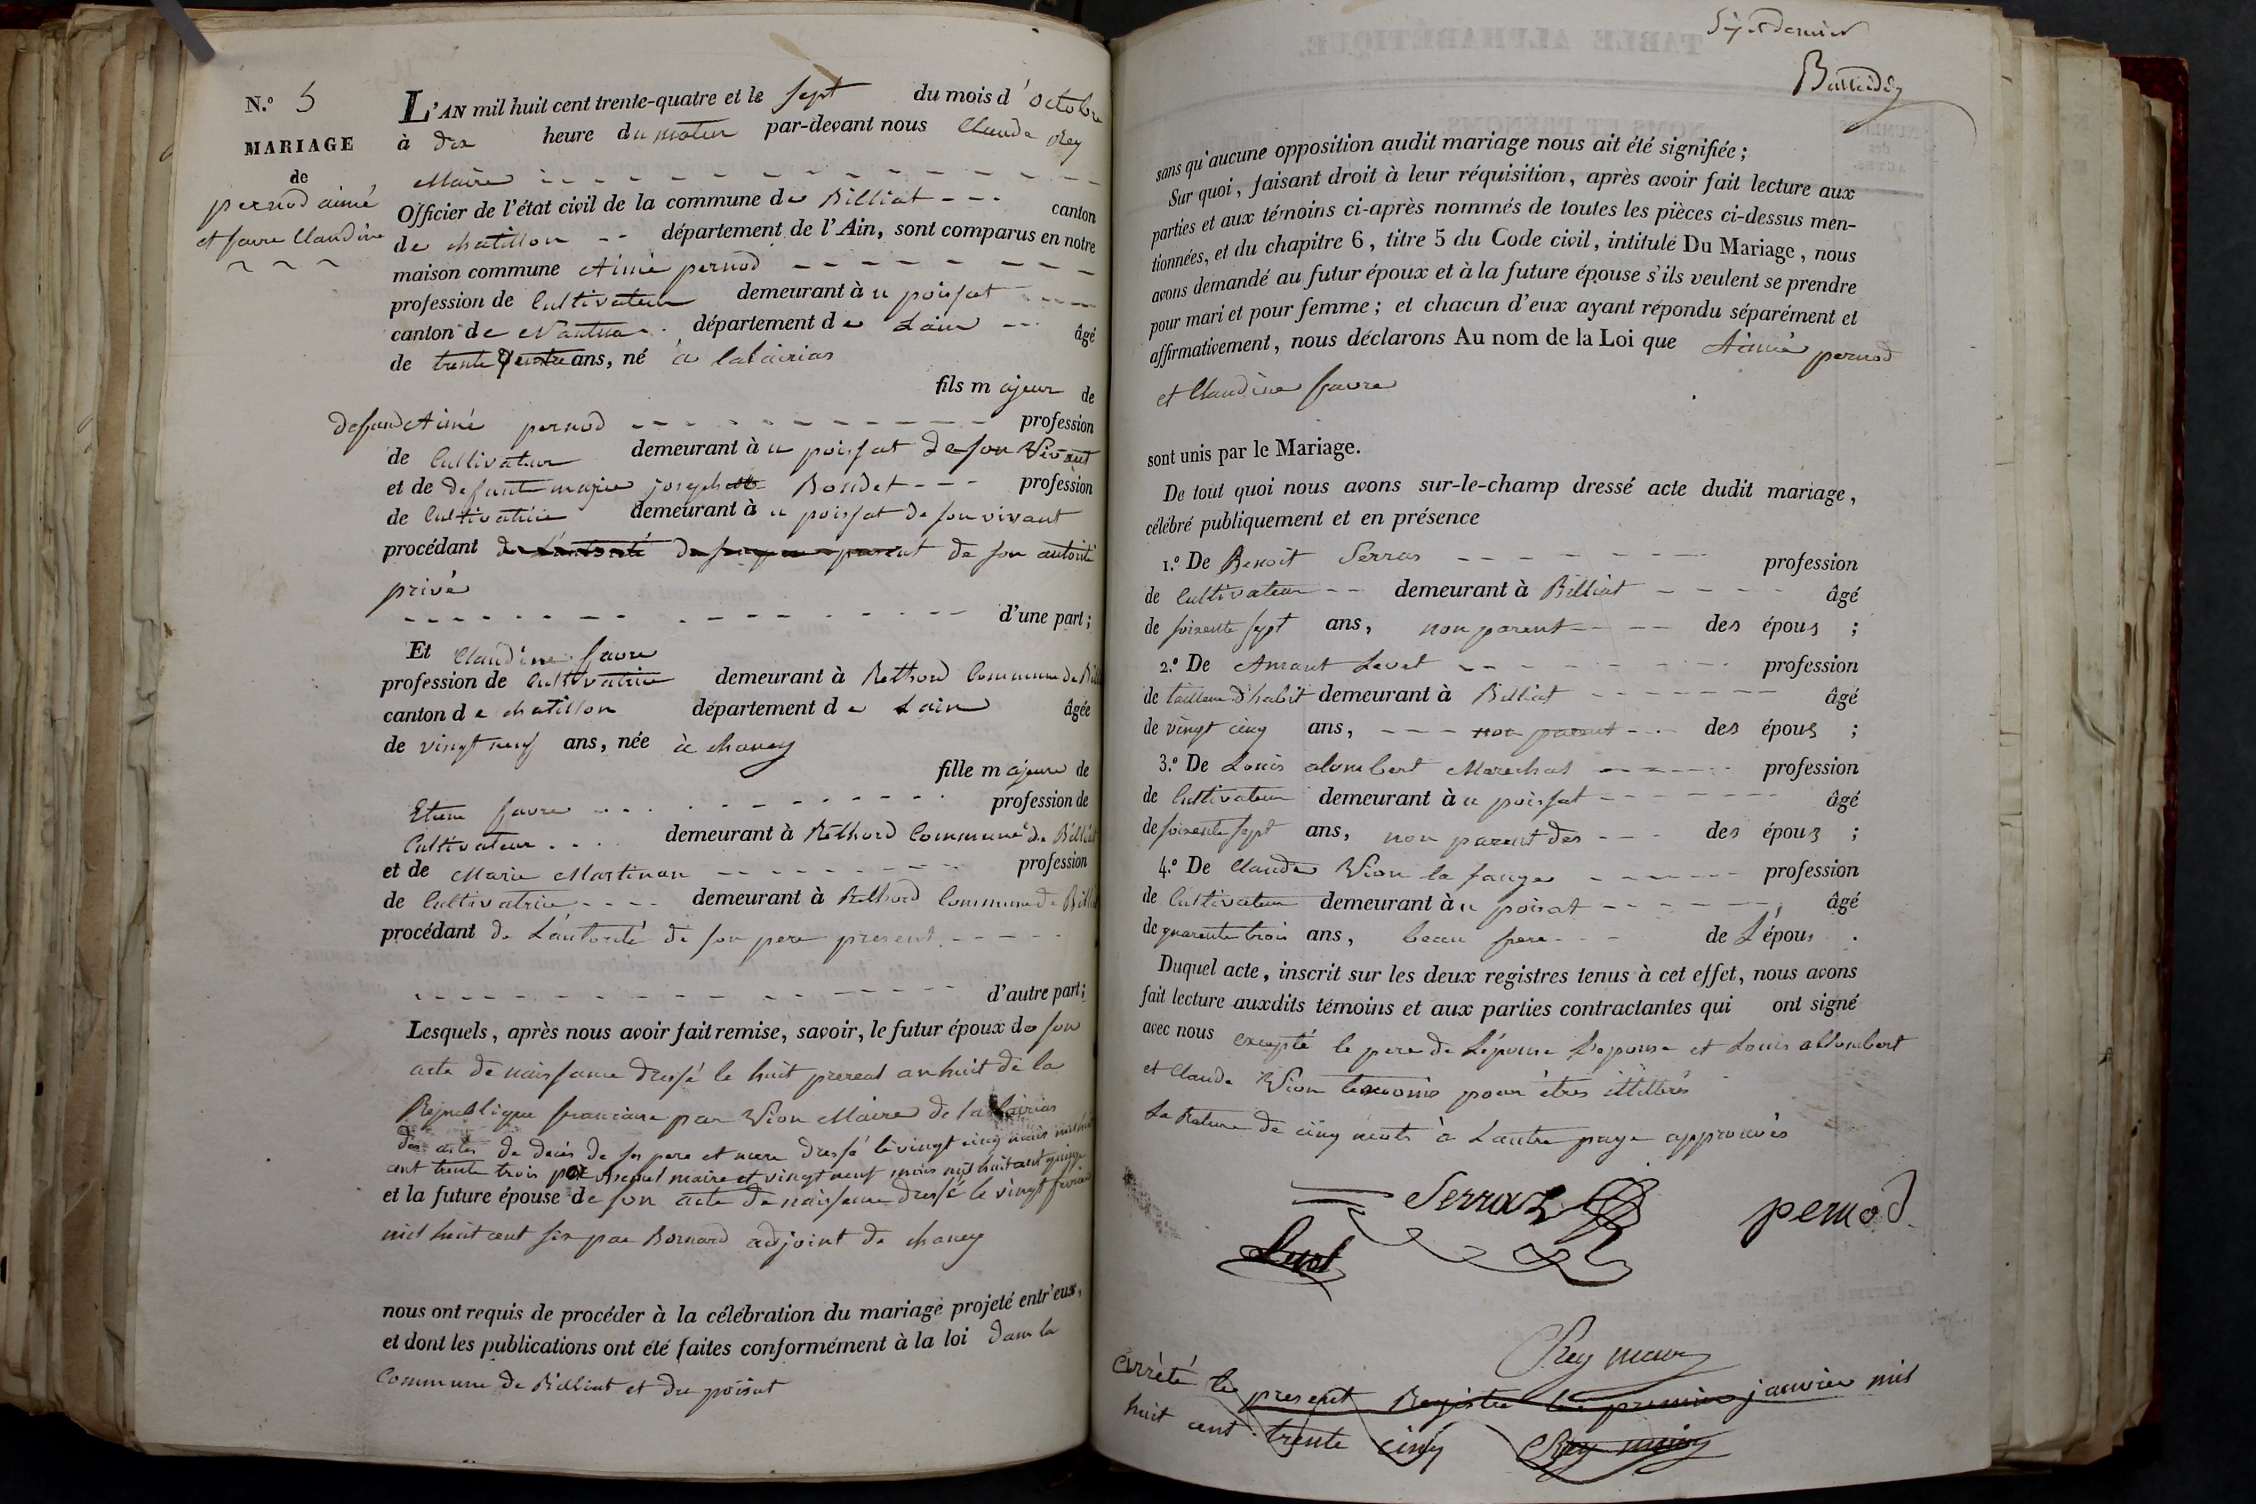 N.º 5
MARIAGE
de
pernod aimé
et favre Claudine
L'AN mil huit cent trente-quatre et le sept du mois d'octobre
à dix heure du matin par-devant nous Claude Rey
Maire
Officier de l'état civil de la commune de Billiat canton
de chatillon département de l'Ain, sont comparus en notre
maison commune Aimé pernod
profession de Cultivateur demeurant à u poisat
canton de Nantua département de Lain âgé
de trente quatre ans, né à lalairias
fils majeur de
defund Aimé pernod profession
de Cultivateur demeurant à u poisat de son Vivant
et de defunte marie josephte Bondet profession
de Cultivatrice demeurant à u poisat de son vivant
procédant de L'autorité de son autorité
privé
d'une part;
Et Claudine favre
profession de Cultivatrice demeurant à Rethord Commune de Bill
canton de chatillon département de Lain âgée
de vingt neuf ans, née à chanay
fille majeure de
Etiene favre profession de
Cultivateur demeurant à Réthord Commune de Billiat
et de Marie Martinan profession
de Cultivatrice demeurant à Rethord Commune de Bill
procédant de L'autorité de son pere present
d'autre part;
Lesquels, après nous avoir fait remise, savoir, le futur époux de son
acte de naissance dressé le huit prereal an huit de la
Republique francaise par Vion Maire de lalairias
des actes de deces de ses pere et mere dressé le vingt cinq mars mil huit
cent trente trois par maire et vingt neuf mars mil huit cent quinze
et la future épouse de son acte de naissance dressé le vingt fevrier
mil huit cent six par Bornard adjoint de chaney
nous ont requis de procéder à la célébration du mariage projeté entr'eux,
et dont les publications ont été faites conformément à la loi dans la
Commune de Billiat et du poisat
TABLE ALPHABÉTIQUE.
NOMS ET PRÉNOMS.
sans qu'aucune opposition audit mariage nous ait été signifiée;
Sur quoi, faisant droit à leur réquisition, après avoir fait lecture aux
parties et aux témoins ci-après nommés de toutes les pièces ci-dessus men-
tionnées, et du chapitre 6, titre 5 du Code civil, intitulé Du Mariage, nous
avons demandé au futur époux et à la future épouse s'ils veulent se prendre
pour mari et pour femme; et chacun d'eux ayant répondu séparément et
affirmativement, nous déclarons Au nom de la Loi que Aimé pernod
et Claudine favre
sont unis par le Mariage.
De tout quoi nous avons sur-le-champ dressé acte dudit mariage,
célébré publiquement et en présence
1.º De Benoit Serras profession
de Cultivateur demeurant à Billiat âgé
de soixente sept ans, non parent des épous ;
2.º De Amant Levet profession
de tailleur d'habit demeurant à Billiat âgé
de vingt cinq ans, non parent des épous ;
3.º De Louis alombert Marechal profession
de Cultivateur demeurant à u poisat âgé
de soixente sept ans, non parent des des épous ;
4.º De Claude Vion la fauge profession
de Cultivateur demeurant à u poisat âgé
de quarente trois ans, beau frere de L'épous .
Duquel acte, inscrit sur les deux registres tenus à cet effet, nous avons
fait lecture auxdits témoins et aux parties contractantes qui ont signé
avec nous excepté le pere de L'épouse L'epouse et Louis allombert
et Claude Vion temoins pour êtres illitterés
La Rature de cinq mots à Lautre page approuvés
Serraz pernod
Levet
Rey maire
Arrêté le present Registre le premier janvier mil
huit cent trente cinq Rey maire